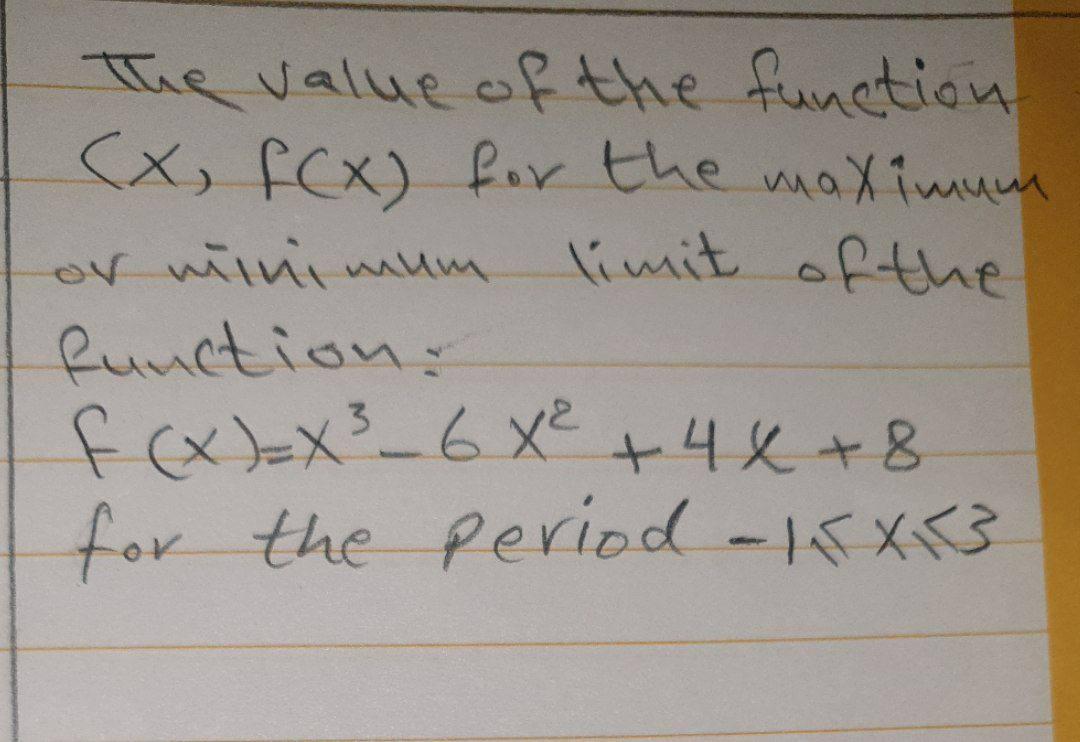 The value of the function
(x, f(x) for the maximum
or minimum limit of the
function:
f(x)=x³-6x²+4x+8
for the period -1≤x≤3